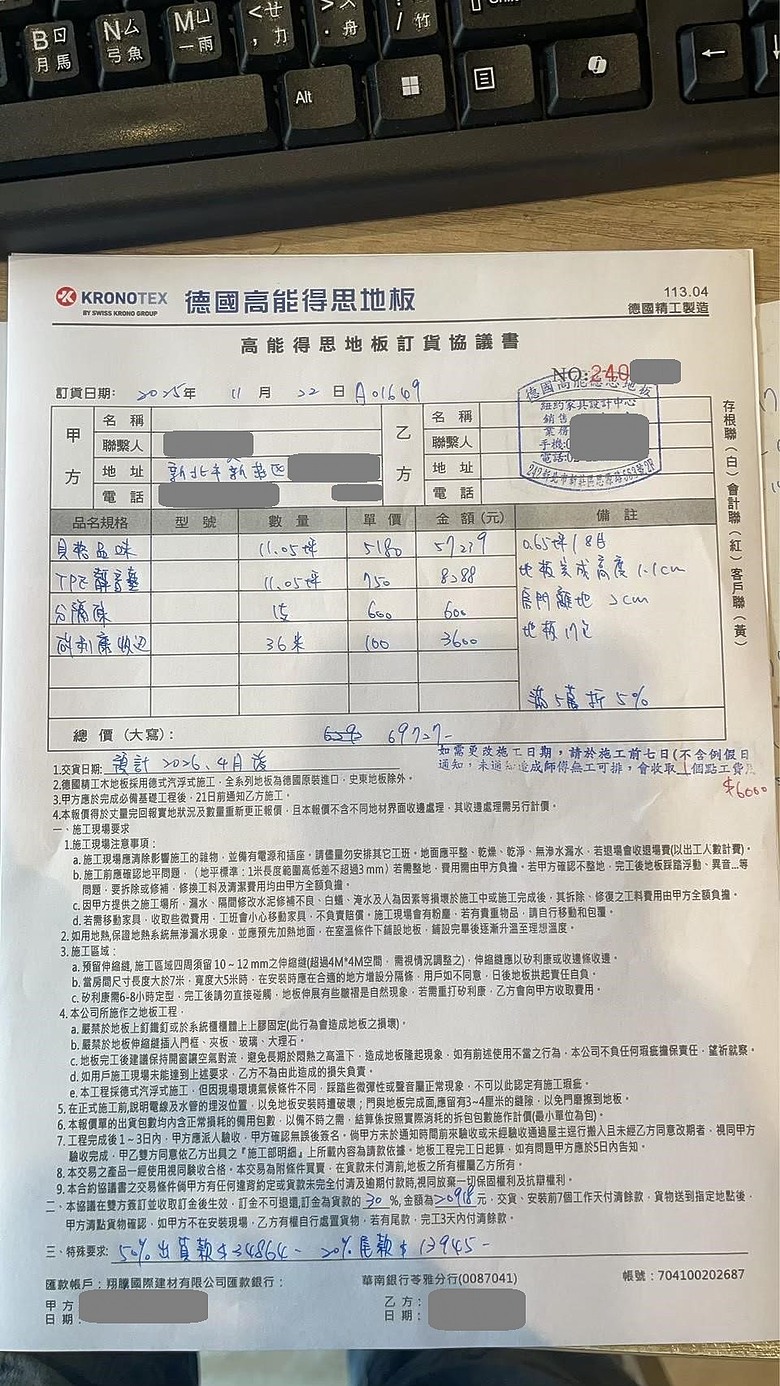 B ㄖ 月 馬
N ㄙ 弓 魚
M ㄩ 一 雨
< ㄝ , 力
> ㄡ . 舟
? ㄥ / 竹
Shift
Alt
KRONOTEX 德國高能得思地板
BY SWISS KRONO GROUP
113.04
德國精工製造
高能得思地板訂貨協議書
NO:240
訂貨日期: 2025年 11 月 22 日 A01649
德國高能得思地板
紐約家具設計中心
銷售
業務
手機:0
電話:02
242新北市新莊區思源路553號2F
甲方 名稱 乙方 名稱
聯繫人 聯繫人
地址 新北市新莊區 地址
電話 電話
存根聯(白)會計聯(紅)客戶聯(黃)
品名規格 型號 數量 單價 金額(元) 備註
貝格品味 11.05坪 5180 57239 0.65坪/8片
TPE靜音墊 11.05坪 750 8288 地板完成高度 1.1cm
分隔條 1支 600 600 房門離地 2cm
矽利康收边 36米 100 3600 地板17包
滿5萬折5%
總價(大寫): 69727-
1.交貨日期: 預計2026.4月後
如需更改施工日期,請於施工前七日(不含例假日
通知,未通知造成師傅無工可排,會收取1個點工費用
$6000
2.德國精工木地板採用德式汽浮式施工,全系列地板為德國原裝進口,史東地板除外。
3.甲方應於完成必備基礎工程後,21日前通知乙方施工。
4.本報價得於丈量完回報實地狀況及數量重新更正報價,且本報價不含不同地材界面收邊處理,其收邊處理需另行計價。
一、施工現場要求
1.施工現場注意事項:
a.施工現場應清除影響施工的雜物,並備有電源和插座。請儘量勿安排其它工班。地面應平整、乾燥、乾淨、無滲水漏水,若退場會收退場費(以出工人數計費)。
b.施工前應確認地平問題,(地平標準:1米長度範圍高低差不超過3 mm)若需整地,費用需由甲方負擔。若甲方確認不整地,完工後地板踩踏浮動、異音...等
問題,要拆除或修補,修換工料及清潔費用均由甲方全額負擔。
c.因甲方提供之施工場所,漏水、隔間修改水泥修補不良、白蟻、淹水及人為因素等損壞於施工中或施工完成後,其拆除、修復之工料費用由甲方全額負擔。
d.若需移動家具,收取些微費用,工班會小心移動家具,不負責賠償。施工現場會有粉塵,若有貴重物品,請自行移動和包覆。
2.如用地熱,保證地熱系統無滲漏水現象,並應預先加熱地面,在室溫條件下鋪設地板,鋪設完畢後逐漸升溫至理想溫度。
3.施工區域:
a.預留伸縮縫,施工區域四周須留10～12mm之伸縮縫(超過4M*4M空間,需視情況調整之),伸縮縫應以矽利康或收邊條收邊。
b.當房間尺寸長度大於7米,寬度大5米時,在安裝時應在合適的地方增設分隔條,用戶如不同意,日後地板拱起責任自負。
c.矽利康需6-8小時定型,完工後請勿直接碰觸,地板伸展有些皺褶是自然現象,若需重打矽利康,乙方會向甲方收取費用。
4.本公司所施作之地板工程,
a.嚴禁於地板上釘鐵釘或於系統櫃櫃體上上膠固定(此行為會造成地板之損壞)。
b.嚴禁於地板伸縮縫插入門框、夾板、玻璃、大理石。
c.地板完工後建議保持開窗讓空氣對流,避免長期於悶熱之高溫下,造成地板隆起現象,如有前述使用不當之行為,本公司不負任何瑕疵擔保責任,望祈就察。
d.如用戶施工現場未能達到上述要求,乙方不為由此造成的損失負責。
e.本工程採德式汽浮式施工,但因現場環境氣候條件不同,踩踏些微彈性或聲音屬正常現象,不可以此認定有施工瑕疵。
5.在正式施工前,說明電線及水管的埋沒位置,以免地板安裝時遭破壞;門與地板完成面,應留有3~4厘米的縫隙,以免門磨擦到地板。
6.本報價單的出貨包數均內含正常損耗的備用包數,以備不時之需,結算係按照實際消耗的拆包包數施作計價(最小單位為包)。
7.工程完成後1～3日內,甲方應派人驗收,甲方確認無誤後簽名。倘甲方未於通知時間前來驗收或未經驗收通過屋主逕行搬入且未經乙方同意改期者,視同甲方
驗收完成,甲乙雙方同意依乙方出具之『施工部明細』上所載內容為請款依據。地板工程完工日起算,如有問題甲方應於5日內告知。
8.本交易之產品一經使用視同驗收合格。本交易為附條件買賣,在貨款未付清前,地板之所有權屬乙方所有。
9.本合約協議書之交易條件倘甲方有任何違背約定或貨款未完全付清及逾期付款時,視同放棄一切保固權利及抗辯權利。
二、本協議在雙方簽訂並收取訂金後生效,訂金不可退還,訂金為貨款的 30 %,金額為20918元,交貨、安裝前7個工作天付清餘款,貨物送到指定地點後,
甲方清點貨物確認,如甲方不在安裝現場,乙方有權自行處置貨物,若有尾款,完工3天內付清餘款。
三、特殊要求: 50% 出貨款$34864- 20%尾款$13945-
匯款帳戶:翔騰國際建材有限公司匯款銀行: 華南銀行苓雅分行(0087041) 帳號:704100202687
甲方 乙方:
日期: 日期: